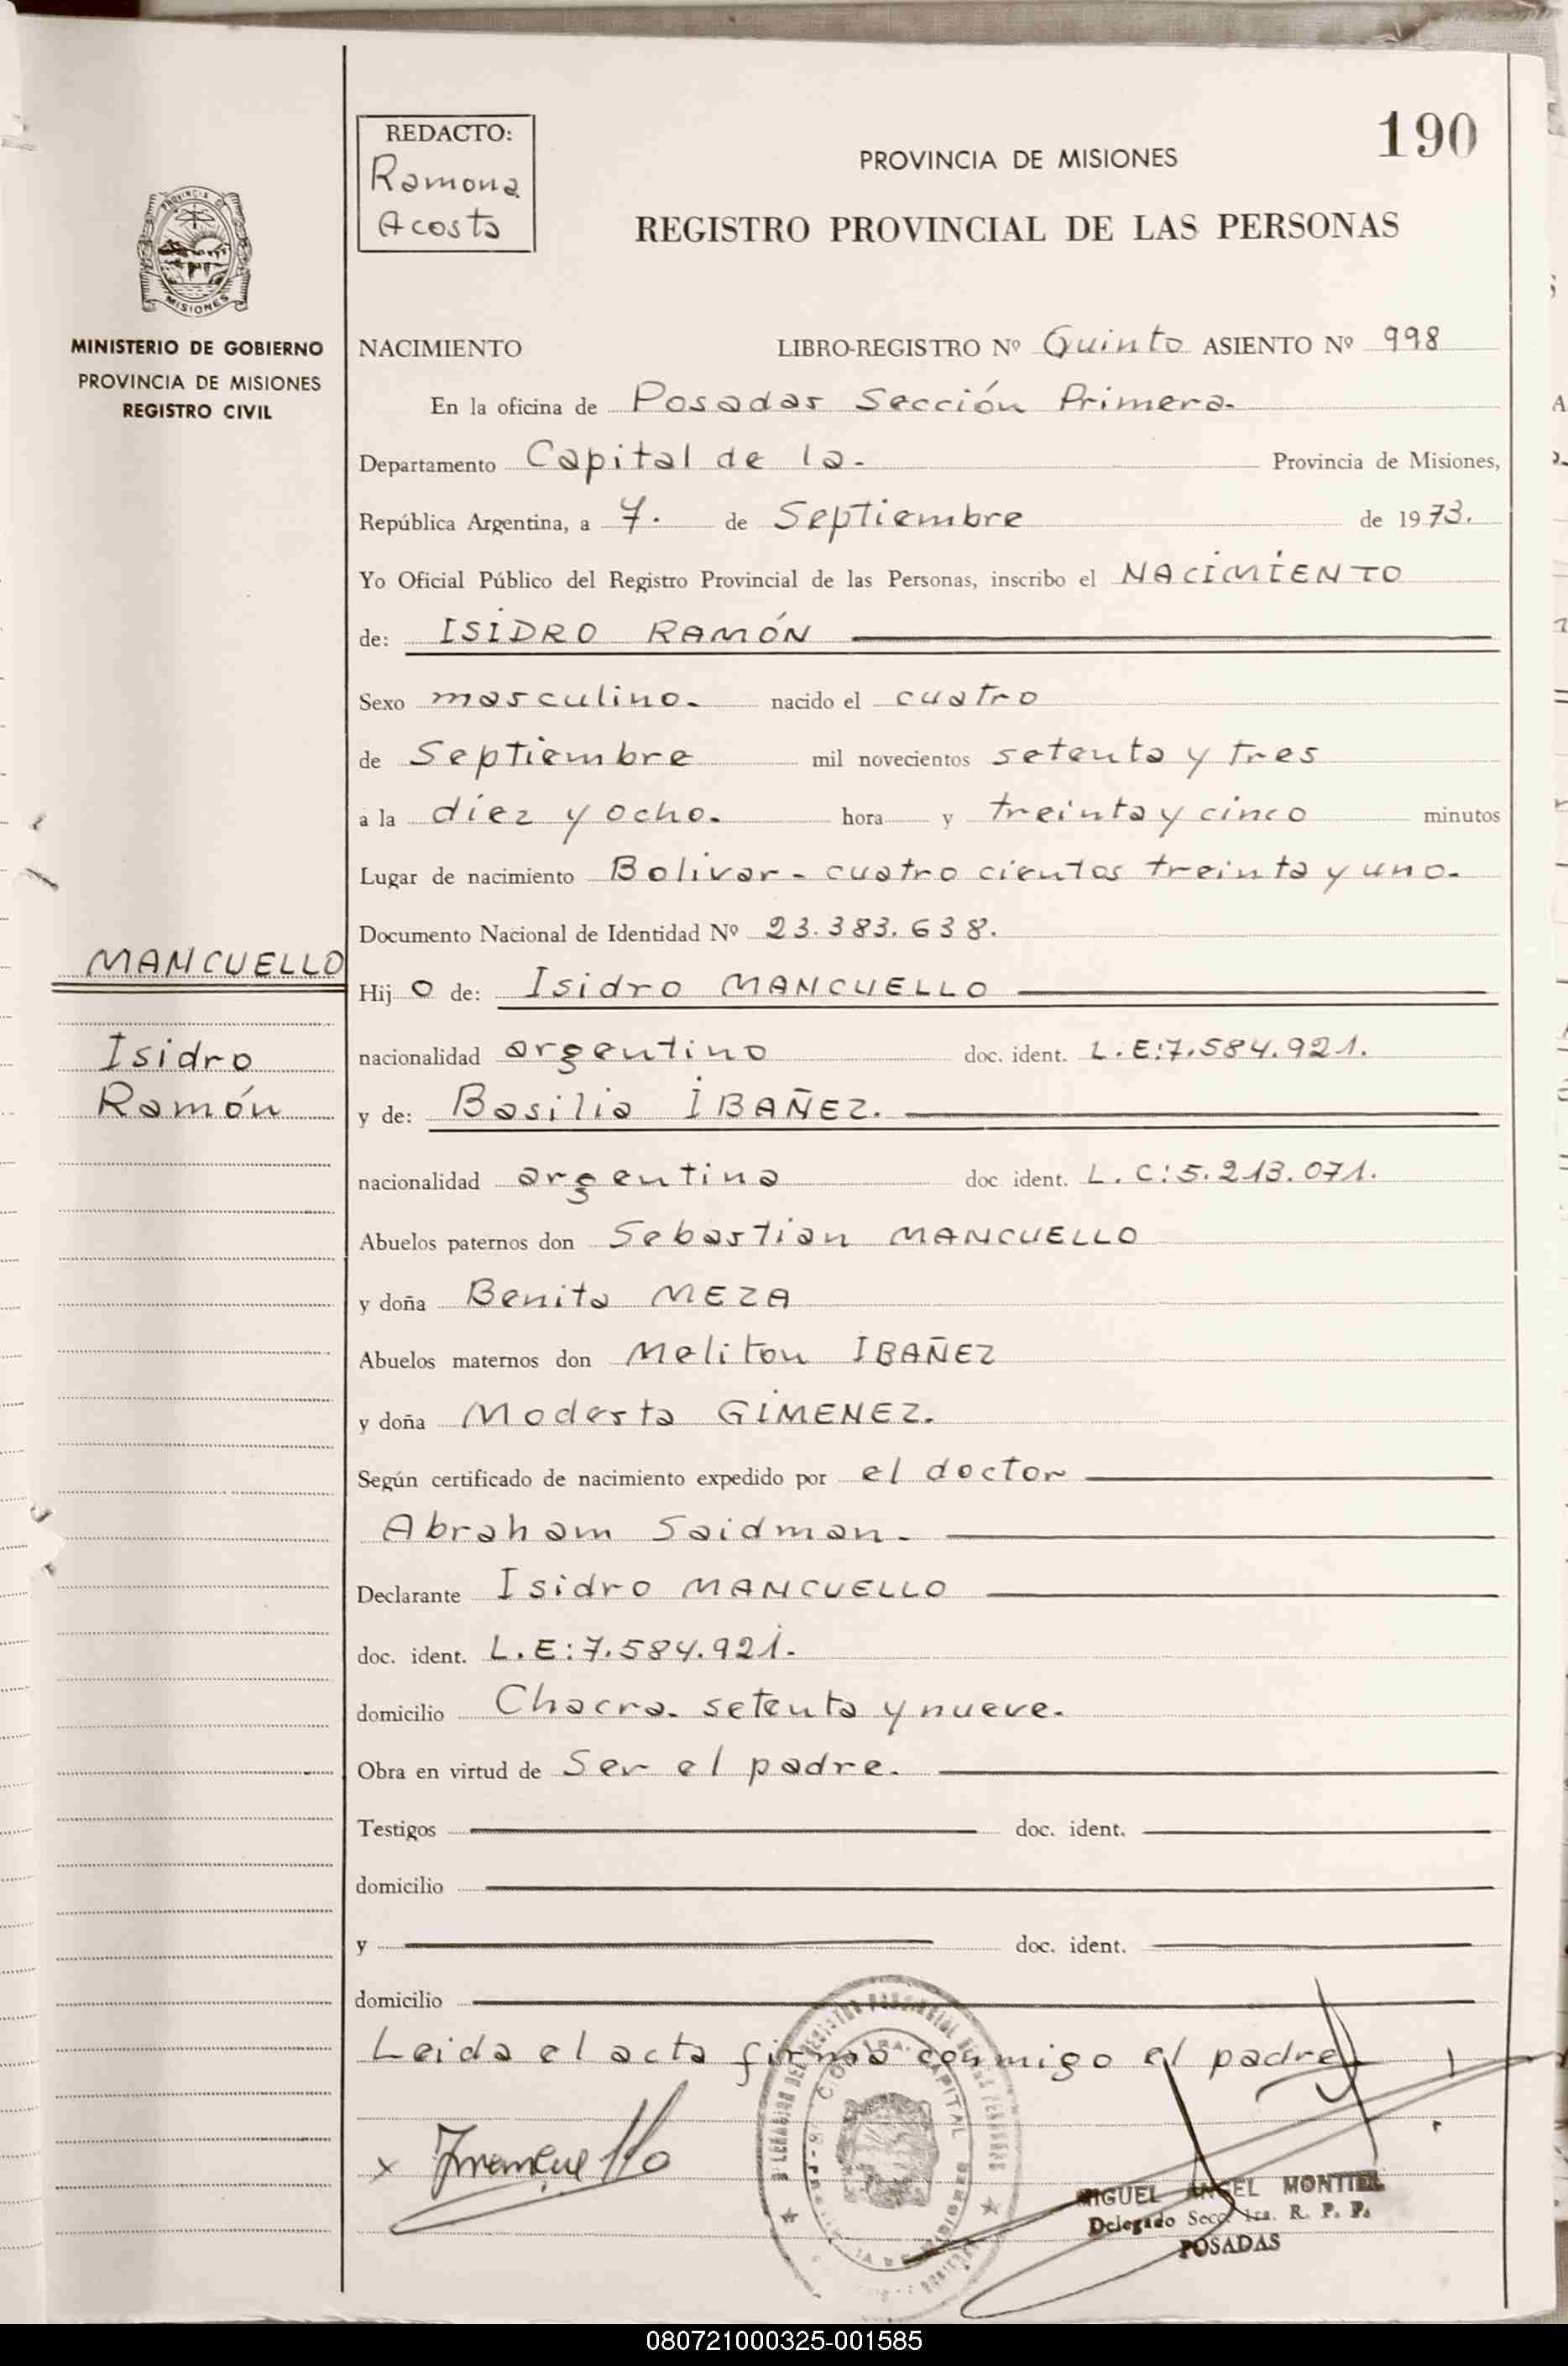 190
REDACTO:
Ramona
Acosta
PROVINCIA DE MISIONES
REGISTRO PROVINCIAL DE LAS PERSONAS
PROVINCIA DE
MISIONES
MINISTERIO DE GOBIERNO
PROVINCIA DE MISIONES
REGISTRO CIVIL
NACIMIENTO LIBRO-REGISTRO Nº Quinto ASIENTO Nº 998
En la oficina de Posadas Sección Primera.
Departamento Capital de la. Provincia de Misiones,
República Argentina, a 7. de Septiembre de 1973.
Yo Oficial Público del Registro Provincial de las Personas, inscribo el NACIMIENTO
de: ISIDRO RAMÓN
Sexo masculino. nacido el cuatro
de Septiembre mil novecientos setenta y tres
a la diez y ocho. hora y treinta y cinco minutos
Lugar de nacimiento Bolivar - cuatro cientos treinta y uno.
Documento Nacional de Identidad Nº 23.383.638.
MANCUELLO
Isidro
Ramón
Hijo de: Isidro MANCUELLO
nacionalidad argentino doc. ident. L.E:7.584.921.
y de: Basilia IBAÑEZ.
nacionalidad argentina doc ident. L.C:5.213.071.
Abuelos paternos don Sebastian MANCUELLO
y doña Benita MEZA
Abuelos maternos don Meliton IBAÑEZ
y doña Modesta GIMENEZ.
Según certificado de nacimiento expedido por el doctor
Abraham Saidman.
Declarante Isidro MANCUELLO
doc. ident. L.E:7.584.921.
domicilio Chacra. setenta y nueve.
Obra en virtud de Ser el padre.
Testigos doc. ident.
domicilio
y doc. ident.
domicilio
Leida el acta firma conmigo el padre
x
MIGUEL ANGEL MONTIEL
Delegado Secc. 1ra. R. P. P.
POSADAS
080721000325-001585